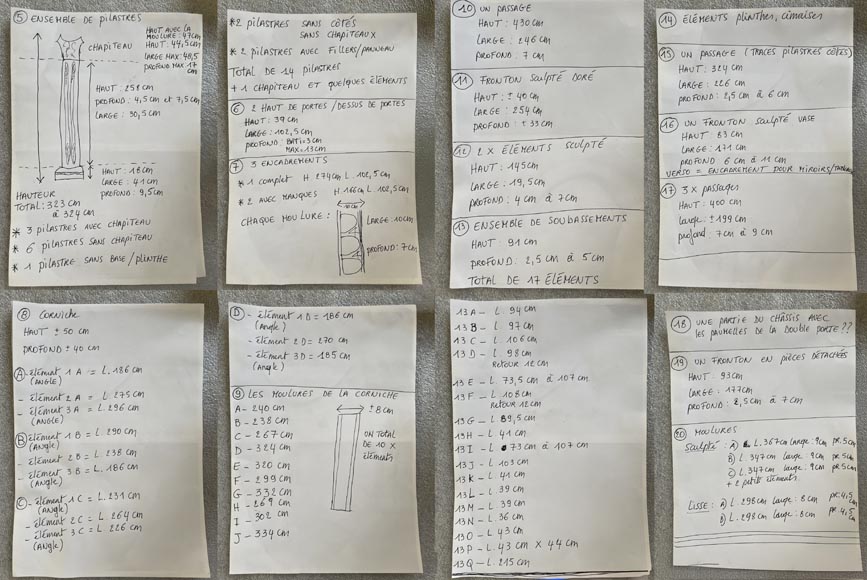 ⑤ ENSEMBLE DE PILASTRES
HAUT AVEC LA
MOULURE: 47cm
HAUT: 44,5cm
LARGE MAX: 48,5
PROFOND MAX 17
cm
CHAPITEAU
HAUT: 258 cm
PROFOND: 4,5cm et 7,5cm
LARGE: 30,5cm
HAUT: 18cm
LARGE: 41cm
PROFOND: 9,5cm
HAUTEUR
TOTAL: 323 cm
à 324 cm
* 3 PILASTRES AVEC CHAPITEAU
* 6 PILASTRES SANS CHAPITEAU
* 1 PILASTRE SANS BASE/PLINTHE
*2 PILASTRES SANS CÔTÉS
SANS CHAPITEAUX
*2 PILASTRES AVEC FILLERS/PANNEAU
TOTAL DE 14 PILASTRES
+ 1 CHAPITEAU ET QUELQUES ÉLÉMENTS
⑥ 2 HAUT DE PORTES/DESSUS DE PORTES
HAUT: 39cm
LARGE: 102,5cm
PROFOND: BATI=3cm
MAX=13cm
⑦ 3 ENCADREMENTS
* 1 complet H. 274cm L. 102,5cm
* 2 AVEC MANQUES H. 166cm L. 102,5cm
CHAQUE MOULURE:
10cm
LARGE: 10cm
PROFOND: 7cm
⑩ UN PASSAGE
HAUT: 430cm
LARGE: 246cm
PROFOND: 7cm
⑪ FRONTON SCULPTÉ DORÉ
HAUT: ± 40cm
LARGE: 254cm
PROFOND: ± 33cm
⑫ 2 X ÉLÉMENTS SCULPTÉ
HAUT: 145cm
LARGE: 19,5cm
PROFOND: 4cm à 7cm
⑬ ENSEMBLE DE SOUBASSEMENTS
HAUT: 91cm
PROFOND: 2,5cm à 5cm
TOTAL DE 17 ÉLÉMENTS
⑭ ÉLÉMENTS plinthes, cimaises
⑮ UN PASSAGE (TRACES PILASTRES CÔTÉS)
HAUT: 324
LARGE: 226
PROFOND: 2,5cm à 6cm
⑯ UN FRONTON sculpté VASE
HAUT: 83cm
LARGE: 171cm
PROFOND 6cm à 11cm
VERSO = ENCADREMENT POUR MIROIRS/
⑰ 3 X passages
HAUT: 400cm
Large: ±199cm
profond: 7cm à 9cm
⑧ Corniche
HAUT ± 50cm
PROFOND ± 40cm
Ⓐ - élément 1A = L. 186cm
(ANGLE)
- élément 2A = L. 275cm
- élément 3A = L. 296cm
(ANGLE)
Ⓑ élément 1B = L. 290cm
(Angle)
- élément 2B = L. 238cm
- élément 3B = L. 186cm
(Angle)
Ⓒ - élément 1C = L. 231cm
(Angle)
- élément 2C = L. 264cm
- élément 3C = L. 226cm
(Angle)
Ⓓ - élément 1D = 186cm
(Angle)
- élément 2D = 270cm
- élément 3D = 185cm
(Angle)
⑨ LES MOULURES DE LA CORNICHE
A- 240cm
B- 238cm
C- 267cm
D- 324cm
E- 320cm
F- 299cm
G- 332cm
H- 269cm
I- 302cm
J- 334cm
±8cm
UN TOTAL
DE 10 X
éléments
13 A - L. 94cm
13 B - L. 97cm
13 C - L. 106cm
13 D - L. 98cm
Retour 12cm
13 E - L. 73,5cm à 107cm
13 F - L. 108cm
RETOUR 12cm
13 G - L. 89,5cm
13 H - L. 41cm
13 I - L. 73cm à 107cm
13 J - L. 103cm
13 K - L. 41cm
13 L - L. 39cm
13 M - L. 39cm
13 N - L. 36cm
13 O - L. 43cm
13 P - L. 43cm X 44cm
13 Q - L. 215cm
⑱ UNE PARTIE DU CHÂSSIS AVEC
LES PAUMELLES DE LA DOUBLE PORTE??
⑲ UN FRONTON EN PIÈCES DÉTACHÉES
HAUT: 93cm
LARGE: 177cm
PROFOND: 2,5cm à 7cm
⑳ MOULURES
Sculpté: A) L. 367cm large: 9cm pr. 5cm
B) L. 347cm large: 9cm pr 5cm
C) L. 347cm large: 9cm pr 5cm
+ 2 petits éléments
Lisse: A) L. 298cm large: 8cm pr. 4,5cm
B) L. 298cm large: 8cm pr. 4,5cm